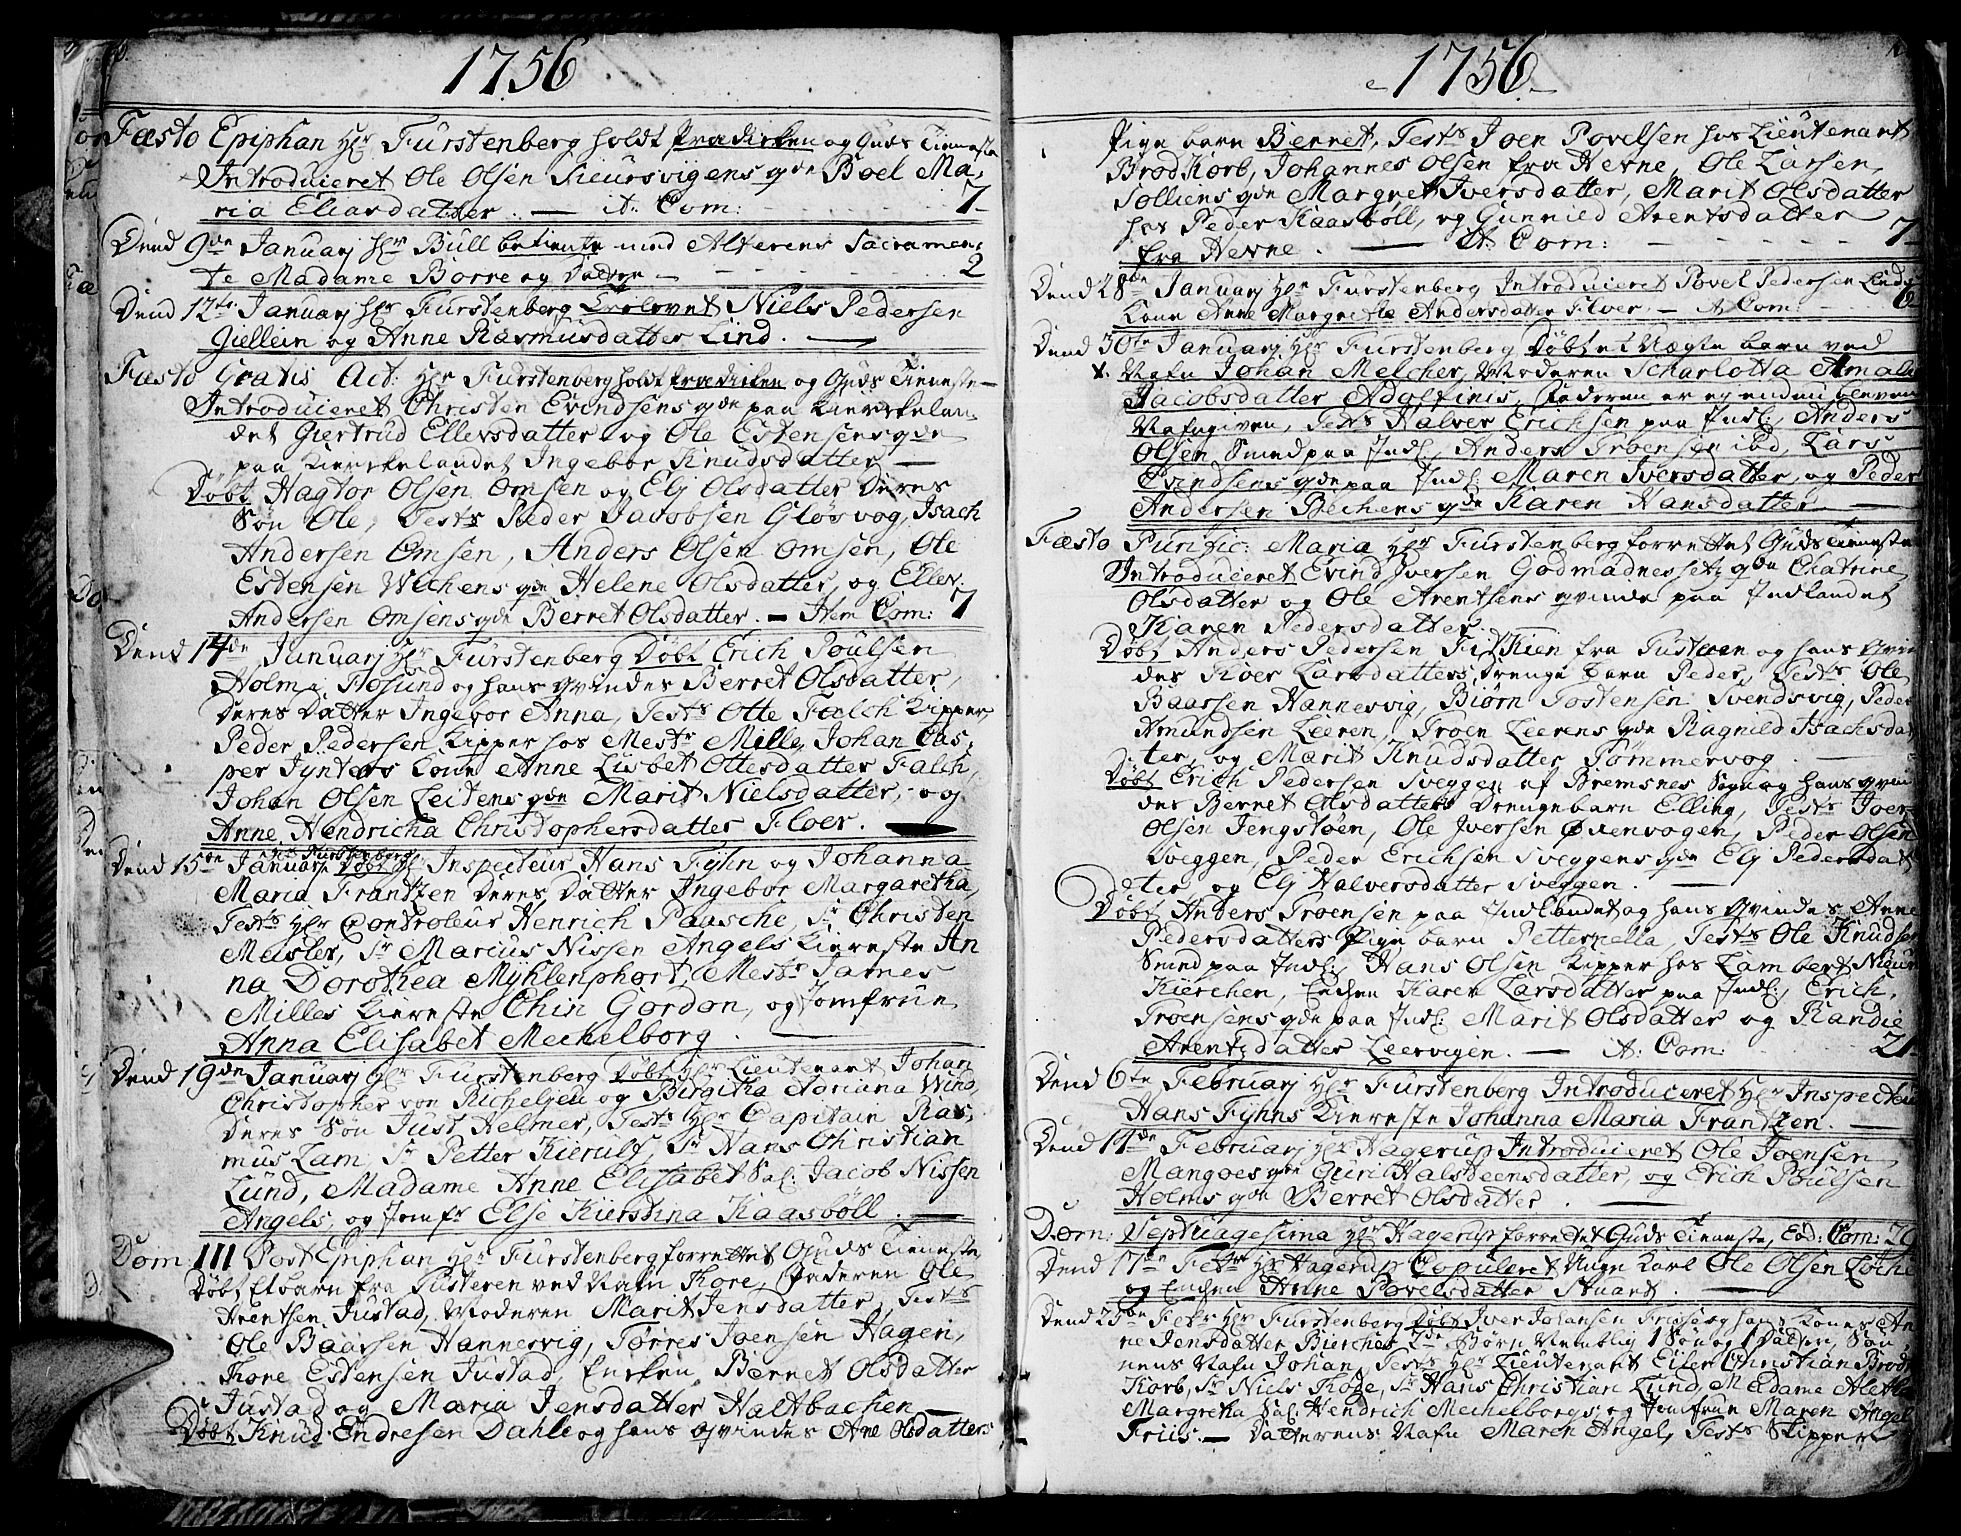 1756
Fæsto Epiphan Hr Furstenberg holdt prædicken og Guds Tieneste
Introduceret Ole Olsen Sieursvigens qde Boel Ma,
ria Eliasdatter. — it. Com: 7
Dend 9de Januarj Hr Bull betiente med Alterens Sacramen,
te Madame Borre og Datter — 2
Dend 12te Januarj Hr Furstenberg Trolovet Niels Pedersen
Giellein og Anne Rasmusdatter Lind. —
Fæsto Gratis Act: Hr Furstenberg holdt prædiken og Guds Tieneste —
Introduceret Christen Evindsens qde paa Kirckelan,
det Giertrud Ellevsdatter og Ole Estensens qde
paa Kirckelandet Ingebor Knudsdatter —
Døbt Hagtor Olsen Omsen og Elj Olsdatter Deres
Søn Ole, Tests Peder Jacobsen Gløsvog, Isach
Andersen Omsen, Anders Olsen Omsen, Ole
Estensen Vechens qde Helene Olsdatter, og Ellev
Andersen Omsens qde Berret Olsdatter. — Item Com: 7
Dend 14de Januarj Hr Furstenberg Døbt Erich Poulsen
Holm i Fosund og hans qvindes Berret Olsdatter,
Deres Datter Ingebor Anna, Tests Otte Falch Kipper,
Peder Pedersen Kipper hos Mestr Mille, Johan Cas,
per Jynters Kone Anne Lisbet Ottesdatter Falch,
Johan Olsen Leitens qde Marit Nielsdatter, og
Anne Hendricha Christophersdatter Floer. —
Dend 15de Januarj Hr Furstenberg Døbt Hr Inspecteur Hans Fyhn og Johanna
Maria Frantzen Deres Datter Ingebor Margaretha,
Tests Hr Controleur Henrich Paasche, Sr Christen
Meisler, Sr Marcus Nissen Angels Kiereste An
na Dorothea Myhlenphort, Mestr James
Milles Kiereste Chir Gordon, og Jomfrue
Anna Elisabet Mechelborg. —
Dend 19de Januarj Hr Furstenberg Døbt Hr Lieutenant Johan
Christopher von Richelieu og Birgitha Noriana Wind,
Deres Søn Just Helmer, Tests Hr Capitain Ras,
mus Lam, Sr Petter Kierulf, Sr Hans Christian
Lund, Madame Anne Elisabet Sal: Jacob Nissen
Angels, og Jomfr Else Kierstina Kaasbøll. —
Dom: III Post Epiphan Hr Furstenberg forrettet Guds Tieneste
Døbt Et barn fra Tusteren ved Nafn Tore, Faderen Ole
Arentsen Justad, Moderen Marit Jensdatter, Tests
Ole Baarsen Hannesvig, Tørres Joensen Hagen,
Tore Estensen Justad, Encken Berret Olsdatter
Justad og Maria Jensdatter Haltbachen —
Døbt Knud Endresen Dahle og hans qvindes Ane Olsdatters
1756
Pige barn Berret, Tests Joen Povelsen hos Lieutenant
Brodkorb, Johannes Olsen fra Hevne, Ole Larsen
Solliens qde Margret Iversdatter, Marit Olsdatter
hos Peder Kaasbøll, og Gunnild Arentsdatter
fra Hevne. — it. Com: 7
Dend 28de Januarj Hr Furstenberg Introduceret Povel Pedersen Linds
Kone Anne Margrethe Andersdatter Floer — it Com: 6
Dend 30te Januarj Hr Furstenberg Døbt et Uægte barn ved
Nafn Johan Melcher, Moderen Scharlotta Amalia
Jacobsdatter Adolfinis, Faderen er ej endnu bleven
Nafngiven, Tests Halver Erichsen paa Indl:, Anders
Olsen Smed paa Indl:, Anders Troensen ibd, Lars
Evindsens qde paa Indl: Maren Iversdatter, og Peder
Andersen Bechens qde Karen Hansdatter —
Fæsto Purific: Maria Hr Furstenberg forrettet Guds Tieneste
Introduceret Evind Iversen Godmadnesset, qde Chatrine
Olsdatter og Ole Arentsens qvinde paa Indlandet
Karen Pedersdatter.
Døbt Anders Pedersen Fidkien fra Tusteren og hans qvin
des Koer Larsdatters Drenge barn Peder, Tests Ole
Baarsen Hannesvig, Biørn Tostensen Svendsvig, Peder
Amundsen Leeren, Troen Leerens qde Ragnild Isachsdat
ter, og Marit Knudsdatter Tømmervog. —
Døbt Erich Pedersen Sveggen af Bremsnes Sogn og hans qvin
des Berret Olsdatters Drengebarn Elling, Tests Joen
Olsen Jengstøen, Ole Iversen Øvenvogen, Peder Olsen
Sveggen, Peder Erichsen Sveggens qde Elj Pedersdat
ter, og Elj Halversdatter Sveggen. —
Døbt Anders Troensen paa Indlandet og hans qvindes Anne
Pedersdatters Pige barn Petternella, Tests Ole Knudsen
Smed paa Indl:, Hans Olsen Kipper hos Lambert Nieu
Kierchen, Encken Karen Larsdatter paa Indl:, Erich
Troensens qde paa Indl: Marit Olsdatter og Randie
Arentsdatter Leervigen. — it. Com: 21
Dend 6te Februarj Hr Furstenberg Introduceret Hr Inspecteur
Hans Fyhns Kiereste Johanna Maria Frantzen. —
Dend 11de Februarj Hr Hagerup Introduceret Ole Joensen
Mangoes qde Guri Halsteensdatter, og Erich Poulsen
Holms qde Berret Olsdatter. —
Dom: Septuagesima Hr Hagerup forrettet Guds Tieneste, Eod. Com:
Dend 17de Febr Hr Hagerup Copuleret Unge Karl Ole Olsen Loche
og Encken Anne Povelsdatter Stuart. —
Dend 23de Febr Hr Furstenberg Døbt Iver Johansen Friis og hans Kones An
ne Jensdatter Bierches 2de Børn Nemblig 1 Søn og 1 Datter, Søn
nens Nafn Johan, Tests Hr Lieutenant Eiler Christian Brod
korb, Sr Niels Koge, Sr Hans Christian Lund, Madame Aleth
Margretha Sal: Hendrich Mechelborgs og Jomfrue Maren Angel
Friis. — Datterens Nafn Maren Angel, Tests Skipper